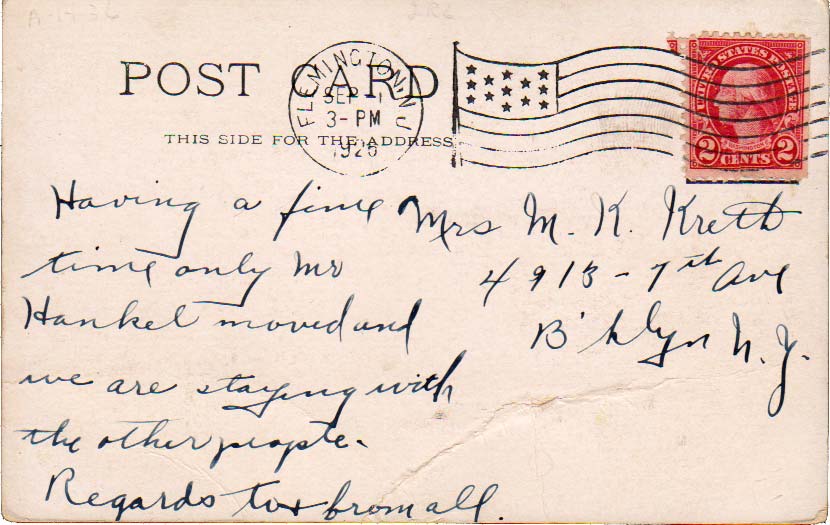 POST CARD
THIS SIDE FOR THE ADDRESS
FLEMINGTON, N.J.
SEP 1
3-PM
UNITED STATES POSTAGE
2 CENTS 2
Having a fine
time only Mr
Hankel moved and
we are staying with
the other people.
Regards to & from all.
Mrs M. K. Kreth
4913 - 7th Ave
B'klyn N.Y.